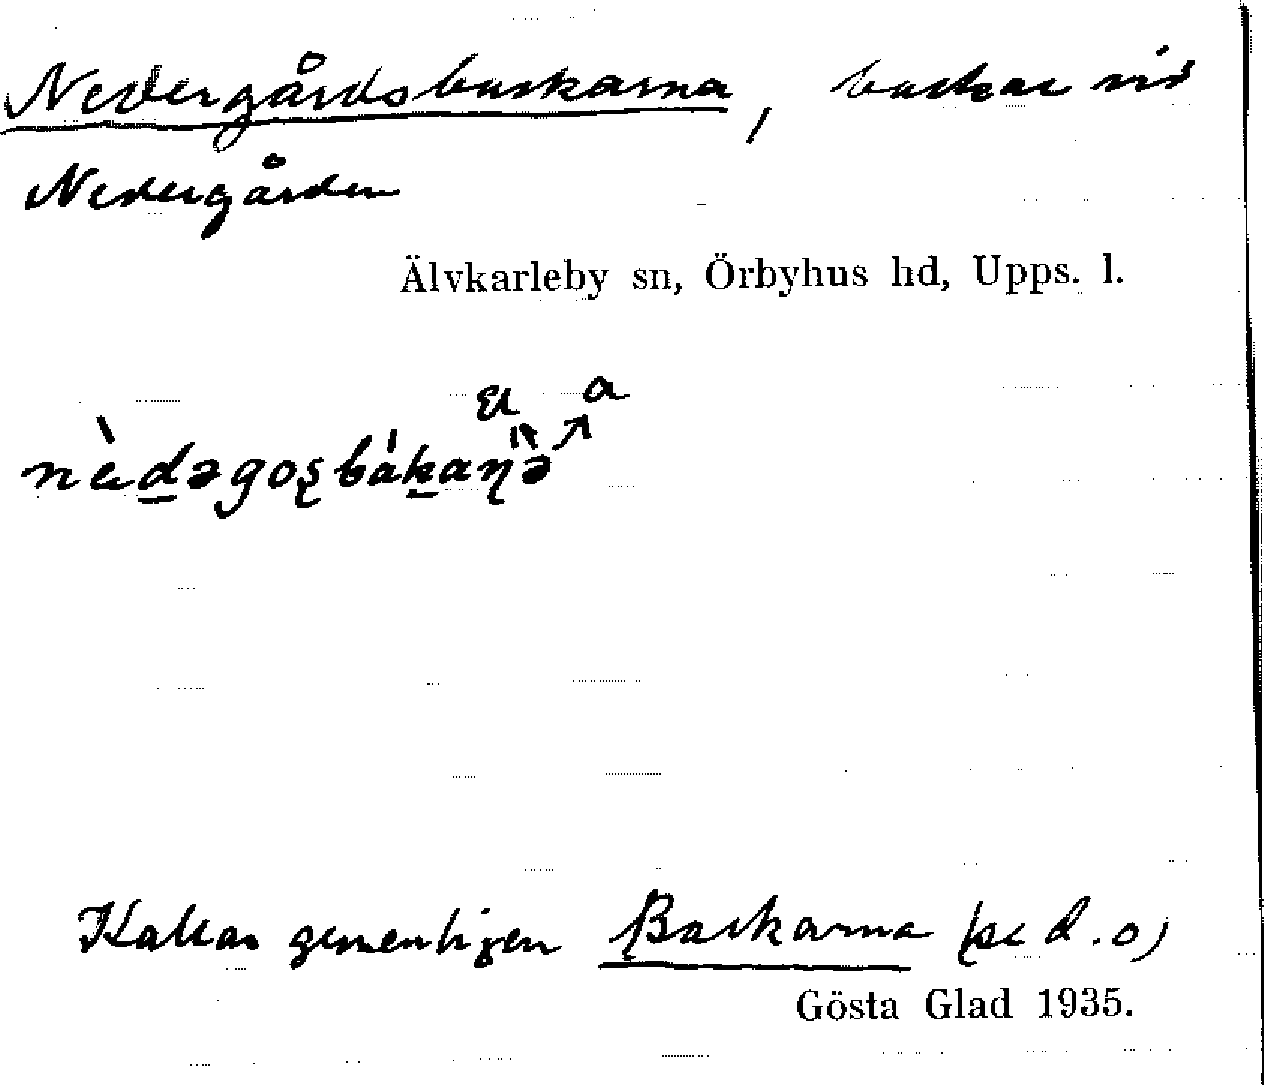 Nedergårdsbackarna, backar vid
Nedergården
Älvkarleby sn, Örbyhus hd, Upps. l.
a
Kallas gemenligen Backarna (se d.o)
Gösta Glad 1935.